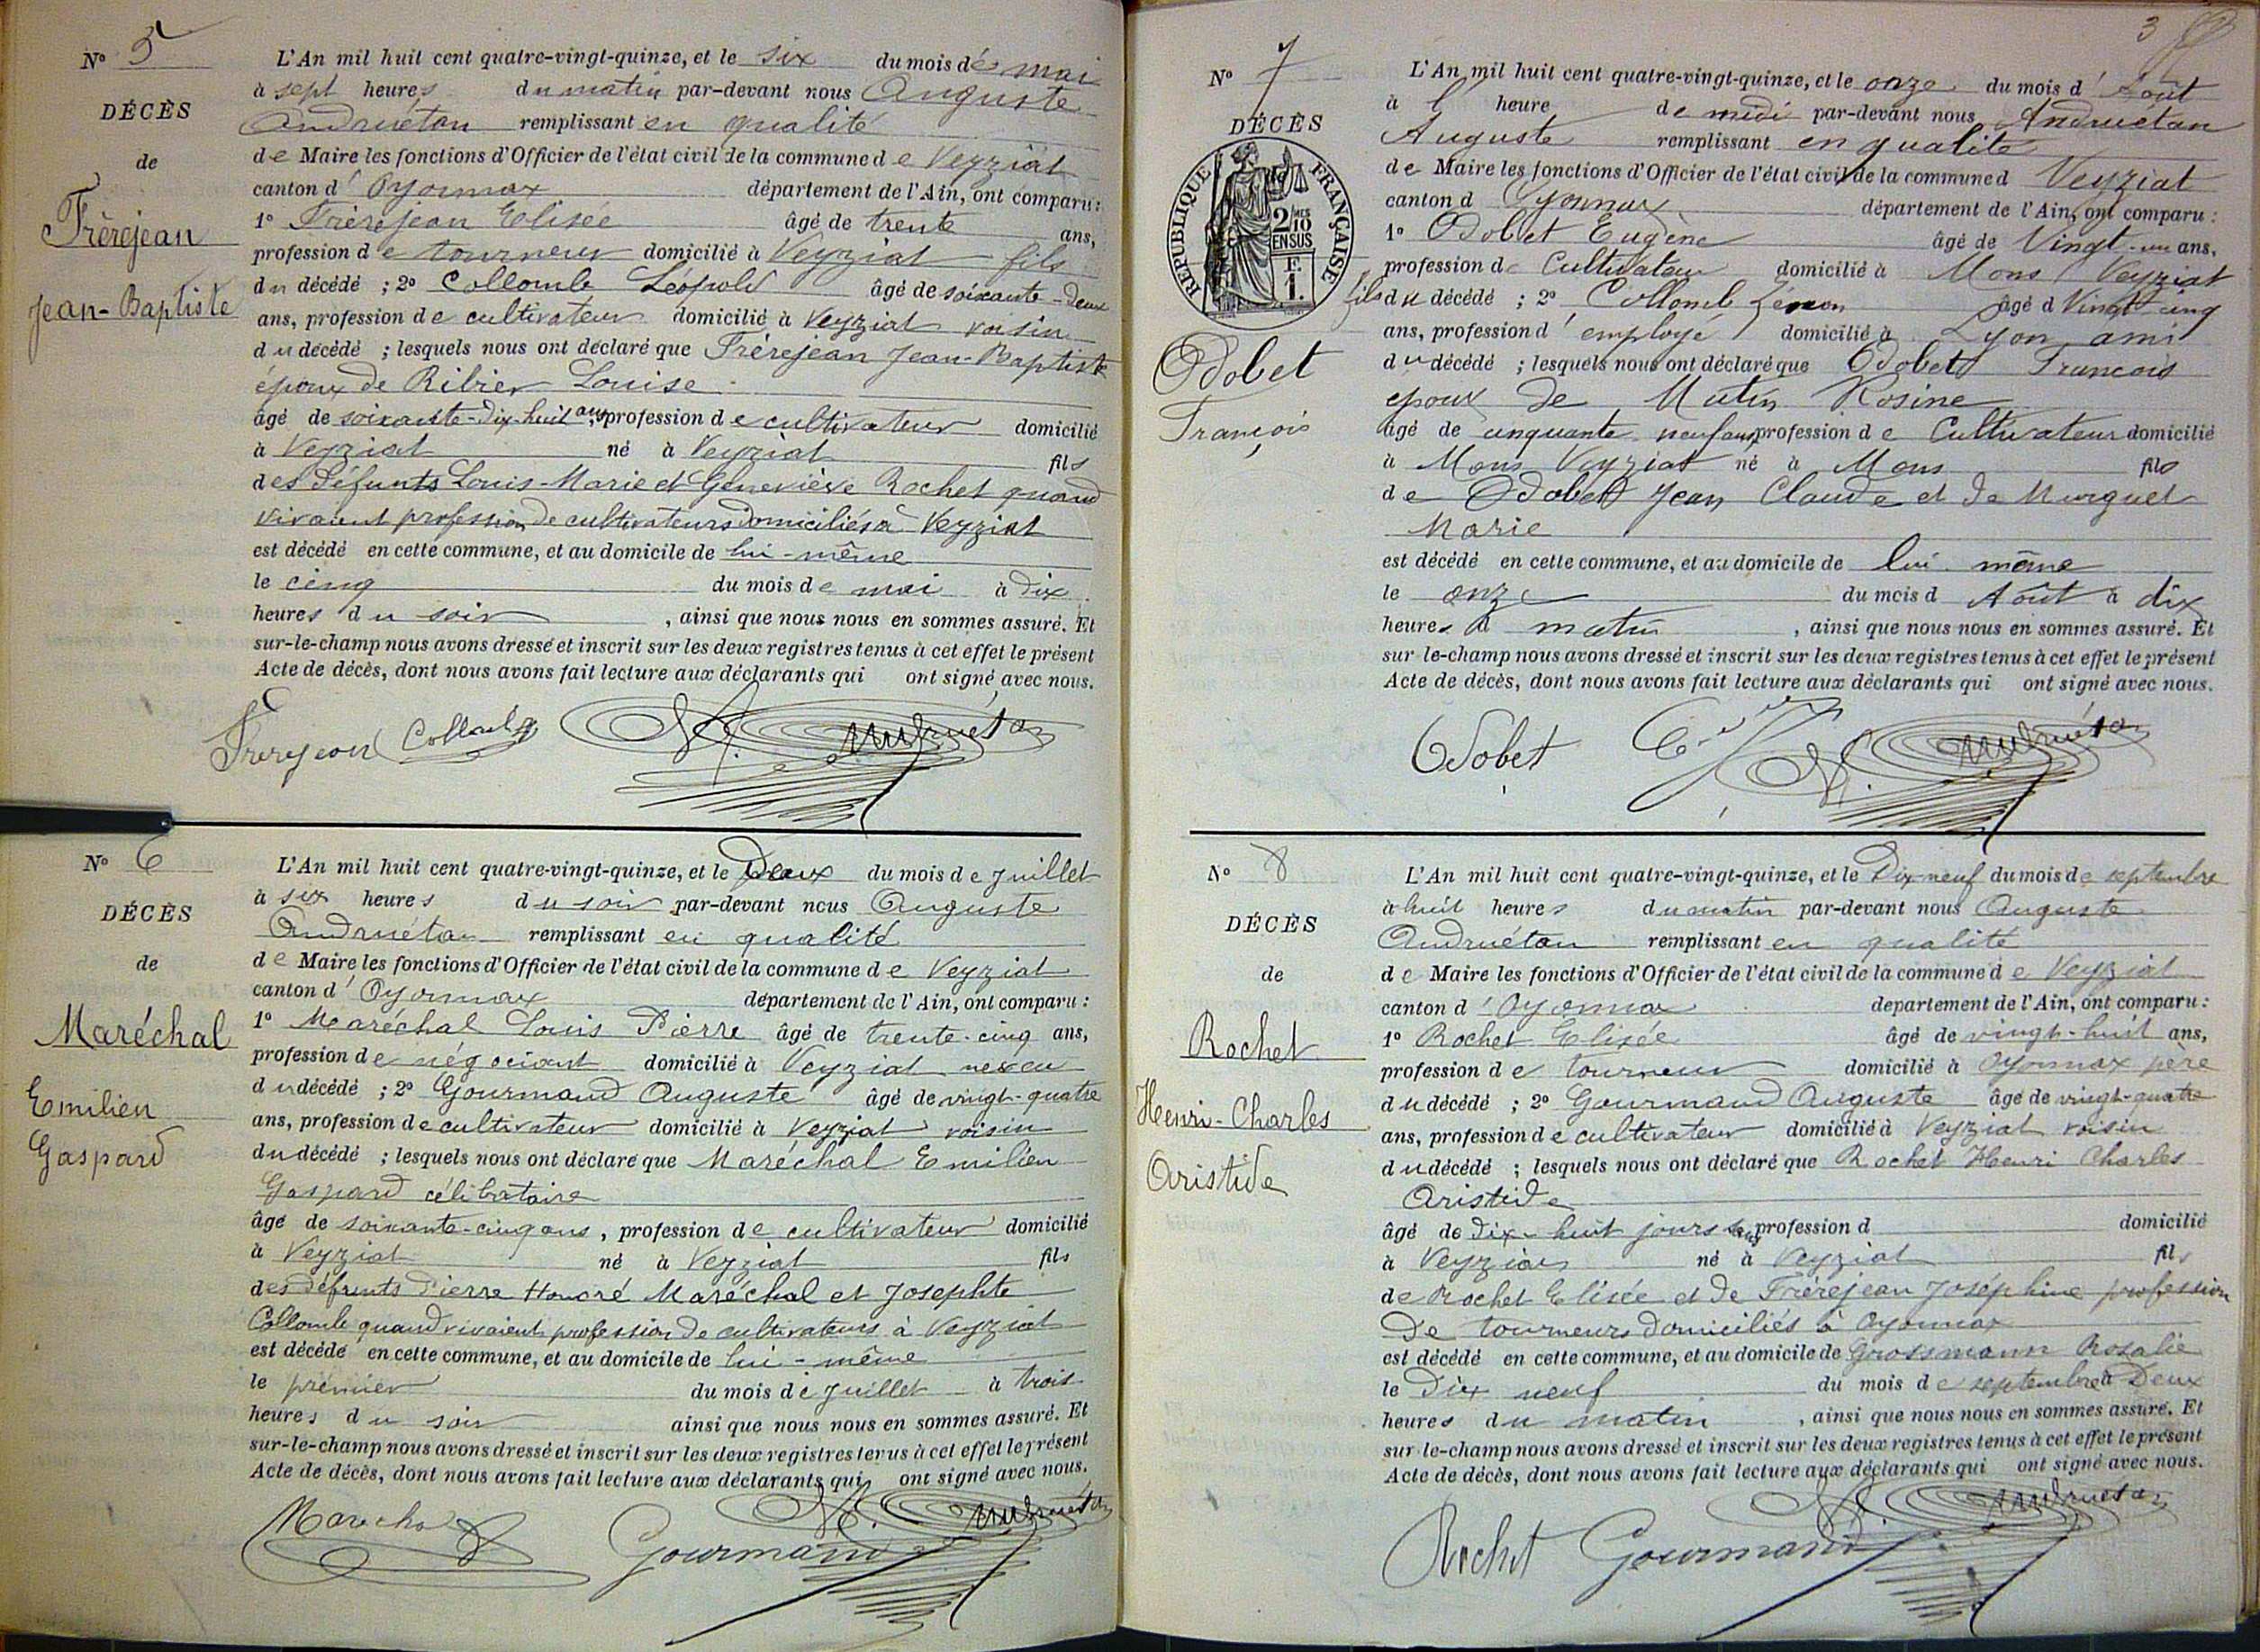 N° 5
DÉCÈS
de
Frèrejean
Jean-Baptiste
L'An mil huit cent quatre-vingt-quinze, et le six du mois de mai
à sept heures du matin par-devant nous Auguste
Andruétan remplissant en qualité
de Maire les fonctions d'Officier de l'état civil de la commune de Veyziat
canton d'Oyonnax département de l'Ain, ont comparu :
1° Frèrejean Elisée âgé de trente ans,
profession de tourneur domicilié à Veyziat fils
du décédé ; 2° Collomb Léopold âgé de soixante-deux
ans, profession de cultivateur domicilié à Veyziat voisin
du décédé ; lesquels nous ont déclaré que Frèrejean Jean-Baptiste
époux de Ribier Louise
âgé de soixante-dix-huit ans, profession de cultivateur domicilié
à Veyziat né à Veyziat fils
des défunts Louis-Marie et Geneviève Rochet quand
vivaient profession de cultivateurs domiciliés à Veyziat
est décédé en cette commune, et au domicile de lui-même
le cinq du mois de mai à dix
heures du soir , ainsi que nous nous en sommes assuré. Et
sur-le-champ nous avons dressé et inscrit sur les deux registres tenus à cet effet le présent
Acte de décès, dont nous avons fait lecture aux déclarants qui ont signé avec nous.
Frerejean Collomb Andruétan
N° 6
DÉCÈS
de
Maréchal
Emilien
Gaspard
L'An mil huit cent quatre-vingt-quinze, et le Deux du mois de Juillet
à six heures du soir par-devant nous Auguste
Andruétan remplissant en qualité
de Maire les fonctions d'Officier de l'état civil de la commune de Veyziat
canton d'Oyonnax département de l'Ain, ont comparu :
1° Maréchal Louis Pierre âgé de trente-cinq ans,
profession de négociant domicilié à Veyziat neveu
du décédé ; 2° Gourmand Auguste âgé de vingt-quatre
ans, profession de cultivateur domicilié à Veyziat voisin
du décédé ; lesquels nous ont déclaré que Maréchal Emilien
Gaspard célibataire
âgé de soixante-cinq ans, profession de cultivateur domicilié
à Veyziat né à Veyziat fils
des défunts Pierre Honoré Maréchal et Josephte
Collomb quand vivaient profession de cultivateurs à Veyziat
est décédé en cette commune, et au domicile de lui-même
le premier du mois de Juillet à trois
heures du soir ainsi que nous nous en sommes assuré. Et
sur-le-champ nous avons dressé et inscrit sur les deux registres tenus à cet effet le présent
Acte de décès, dont nous avons fait lecture aux déclarants qui ont signé avec nous.
Marechal Gourmand Andruétan
3
N° 7
DÉCÈS
RÉPUBLIQUE FRANÇAISE
2/10 MES
EN SUS
F.
1.
Odobet
François
L'An mil huit cent quatre-vingt-quinze, et le onze du mois d'Août
à l' heure de midi par-devant nous Andruétan
Auguste remplissant en qualité
de Maire les fonctions d'Officier de l'état civil de la commune d Veyziat
canton d Oyonnax département de l'Ain, ont comparu :
1° Odobet Eugène âgé de Vingt-un ans,
profession de Cultivateur domicilié à Mons Veyziat
fils du décédé ; 2° Collomb Zénon âgé d Vingt cinq
ans, profession d'employé domicilié à Lyon ami
du décédé ; lesquels nous ont déclaré que Odobet François
époux de Mutin Rosine
âgé de cinquante neuf ans, profession de Cultivateur domicilié
à Mons Veyziat né à Mons fils
de Odobet Jean Claude et de Murguet
Marie
est décédé en cette commune, et au domicile de lui même
le onze du mois d Août à dix
heures d matin , ainsi que nous nous en sommes assuré. Et
sur-le-champ nous avons dressé et inscrit sur les deux registres tenus à cet effet le présent
Acte de décès, dont nous avons fait lecture aux déclarants qui ont signé avec nous.
Odobet Andruétan
N° 8
DÉCÈS
de
Rochet
Henri-Charles
Aristide
L'An mil huit cent quatre-vingt-quinze, et le Dix-neuf du mois de septembre
à huit heures du matin par-devant nous Auguste
Andruétan remplissant en qualité
de Maire les fonctions d'Officier de l'état civil de la commune de Veyziat
canton d'Oyonnax département de l'Ain, ont comparu :
1° Rochet Elisée âgé de vingt-huit ans,
profession de tourneur domicilié à Oyonnax père
du décédé ; 2° Gourmand Auguste âgé de vingt-quatre
ans, profession de cultivateur domicilié à Veyziat voisin
du décédé ; lesquels nous ont déclaré que Rochet Henri Charles
Aristide
âgé de dix-huit jours profession d domicilié
à Veyziat né à Veyziat fils
de Rochet Elisée et de Frèrejean Joséphine profession
De tourneurs domiciliés à Oyonnax
est décédé en cette commune, et au domicile de Grossmann Rosalie
le Dix neuf du mois de septembre à Deux
heures du matin , ainsi que nous nous en sommes assuré. Et
sur-le-champ nous avons dressé et inscrit sur les deux registres tenus à cet effet le présent
Acte de décès, dont nous avons fait lecture aux déclarants qui ont signé avec nous.
Rochet Gourmand Andruétan